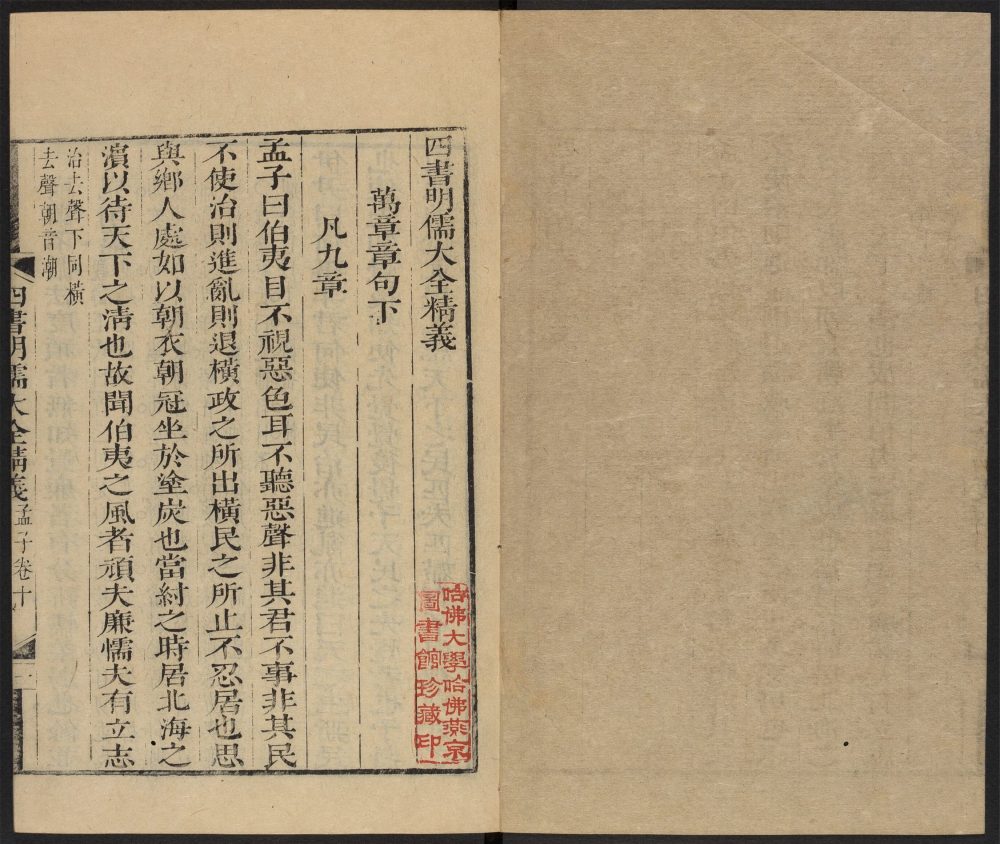 四書明儒大全精義
萬章章句下
凡九章
孟子曰伯夷目不視惡色耳不聽惡聲非其君不事非其民
不使治則進亂則退橫政之所出橫民之所止不忍居也思
與鄉人處如以朝衣朝冠坐於塗炭也當紂之時居北海之
濱以待天下之清也故聞伯夷之風者頑夫廉懦夫有立志
治去聲下同橫
去聲朝音潮
四書明儒大全精義 孟子卷十 一
哈佛大學哈佛燕京
圖書館珍藏印